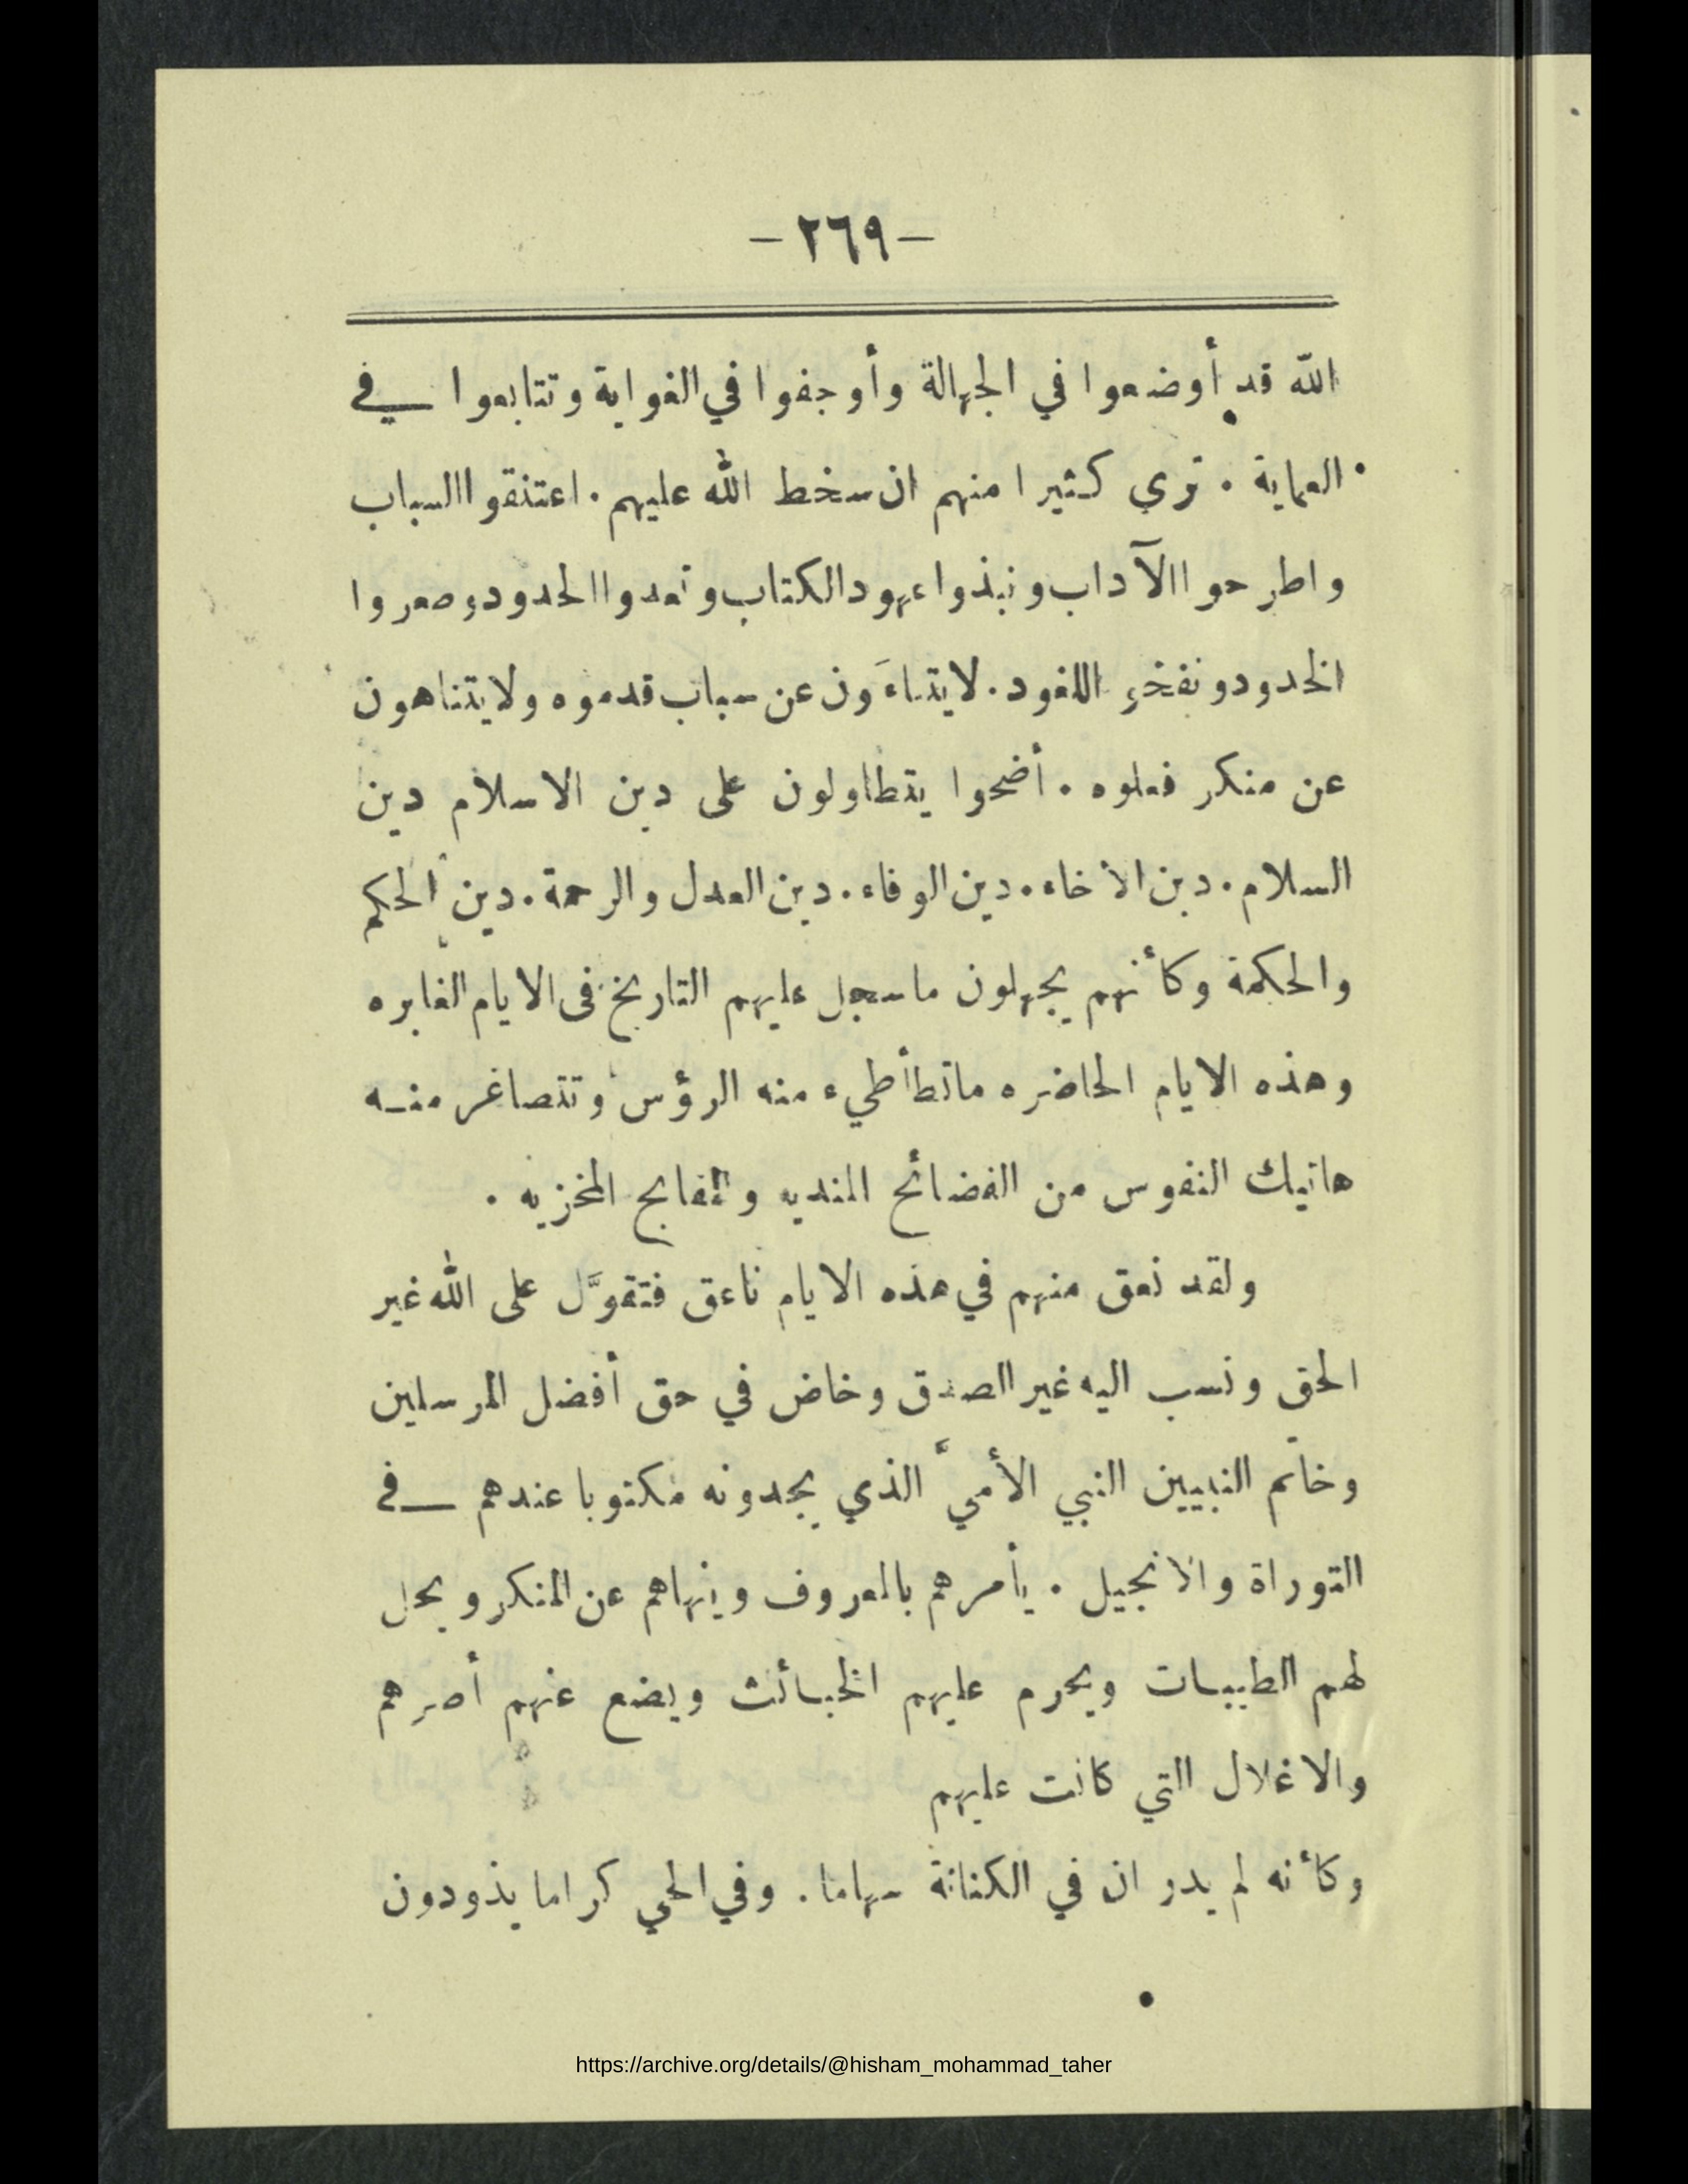 – ٢٦٩ –
الله قد أوضعوا في الجهالة وأوجفوا في الغواية وتتابعوا في
العماية . ترى كثيرا منهم ان سخط الله عليهم . اعتنقوا السباب
واطرحوا الآداب ونبذوا عهود الكتاب وتعدوا الحدود وصعروا
الخدود ونفخو اللغود . لا يتساءَون عن سباب قدموه ولا يتناهون
عن منكر فعلوه . أضحوا يتطاولون على دين الاسلام دين
السلام . دين الاخاء . دين الوفاء . دين العدل والرحمة . دين الحكم
والحكمة وكأنهم يجهلون ما سجل عليهم التاريخ في الايام الغابره
وهذه الايام الحاضره ماتطأطيء منه الرؤس وتتصاغر منه
هاتيك النفوس من الفضائح المنديه والمقابح المخزيه .
ولقد نعق منهم في هذه الايام ناعق فتقوَّل على الله غير
الحق ونسب اليه غير الصدق وخاض في حق أفضل المرسلين
وخاتم النبيين النبي الأميَّ الذي يجدونه مكتوبا عندهم في
التوراة والانجيل . يأمرهم بالمعروف وينهاهم عن المنكر ويحل
لهم الطيبات ويحرم عليهم الخبائث ويضع عنهم أصرهم
والاغلال التي كانت عليهم
وكأنه لم يدر ان في الكنانة سهاما . وفي الحي كراما يذودون
https://archive.org/details/@hisham_mohammad_taher